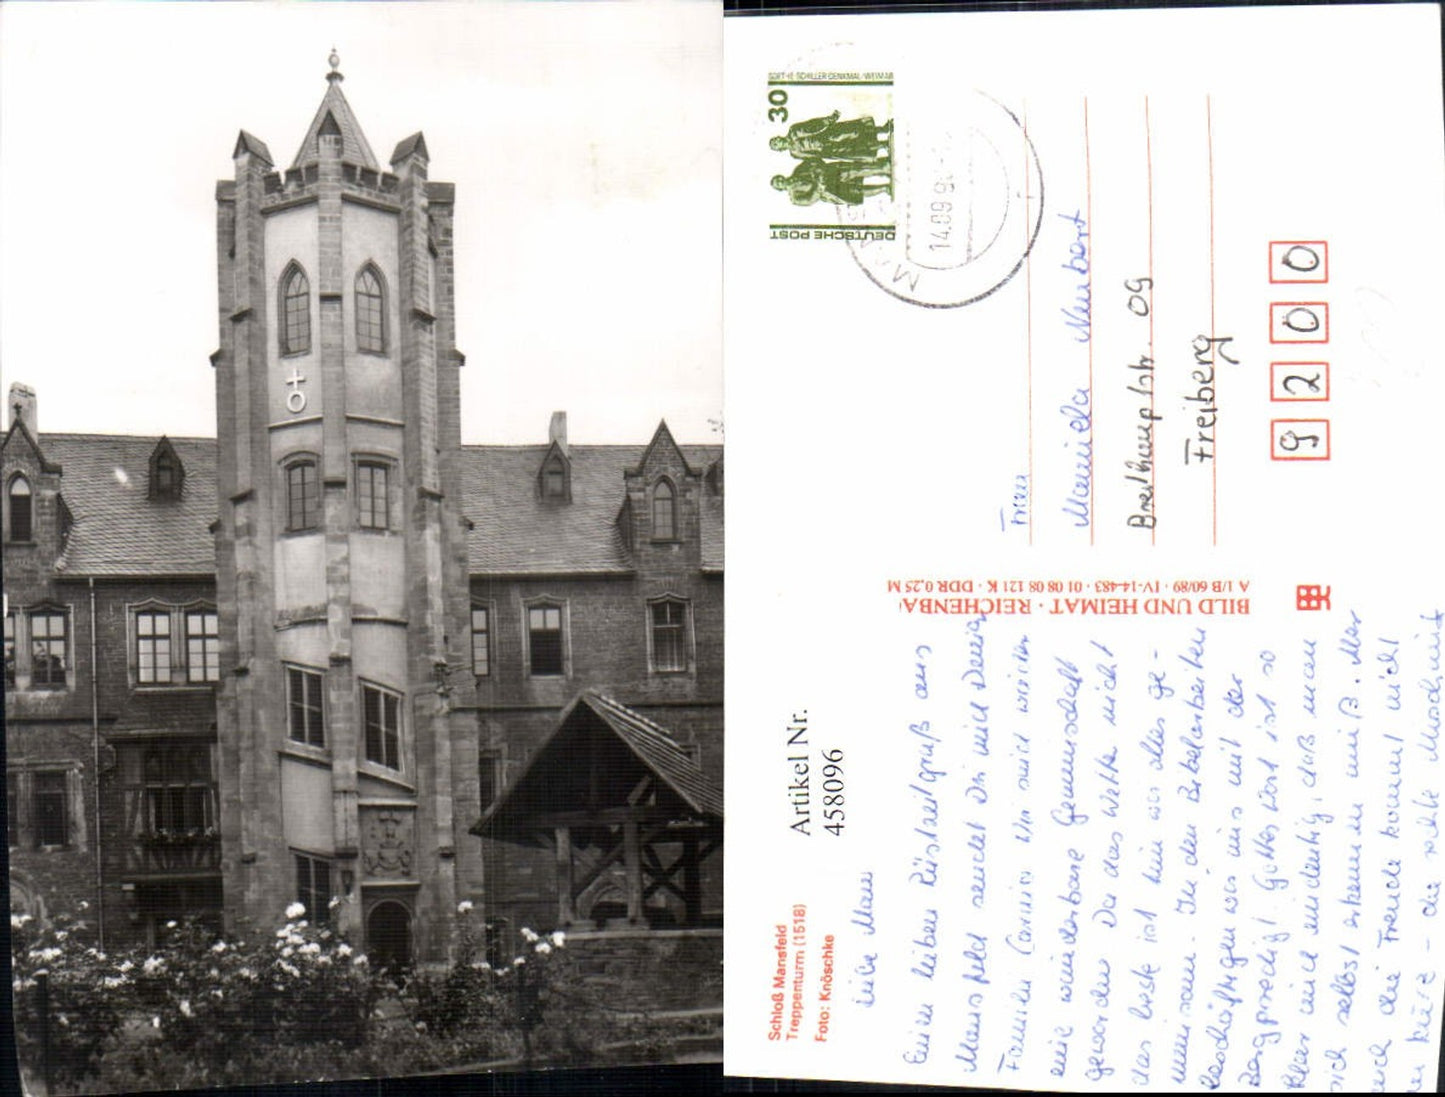 30
GOETHE-SCHILLER-DENKMAL/WEIMAR
DEUTSCHE POST
14.09.9
Schloß Mansfeld
Treppenturm (1518)
Foto: Knöschke
Artikel Nr.
458096
BILD UND HEIMAT · REICHENBA
A 1/B 60/89 · IV-14-483 · 01 08 08 121 K · DDR 0,25 M
Frau
Manuela Neubert
Breithauptstr. 09
Freiberg
9200
Liebe Manu
Einen lieben Rüstzeitgruß aus
Mansfeld sendet Dir und Deiner
Familie
eine wunderbare Gemeinschaft
geworden. Da das Wetter nicht
das beste ist tun wir alles ge-
meinsam. In den Bibelarbeiten
beschäftigen wir uns mit der
Bergpredigt. Gottes Wort ist so
klar und eindeutig, daß man
sich selbst erkennen muß. Aber
auch die Freude kommt nicht
zu kurz - die rechte Mischung